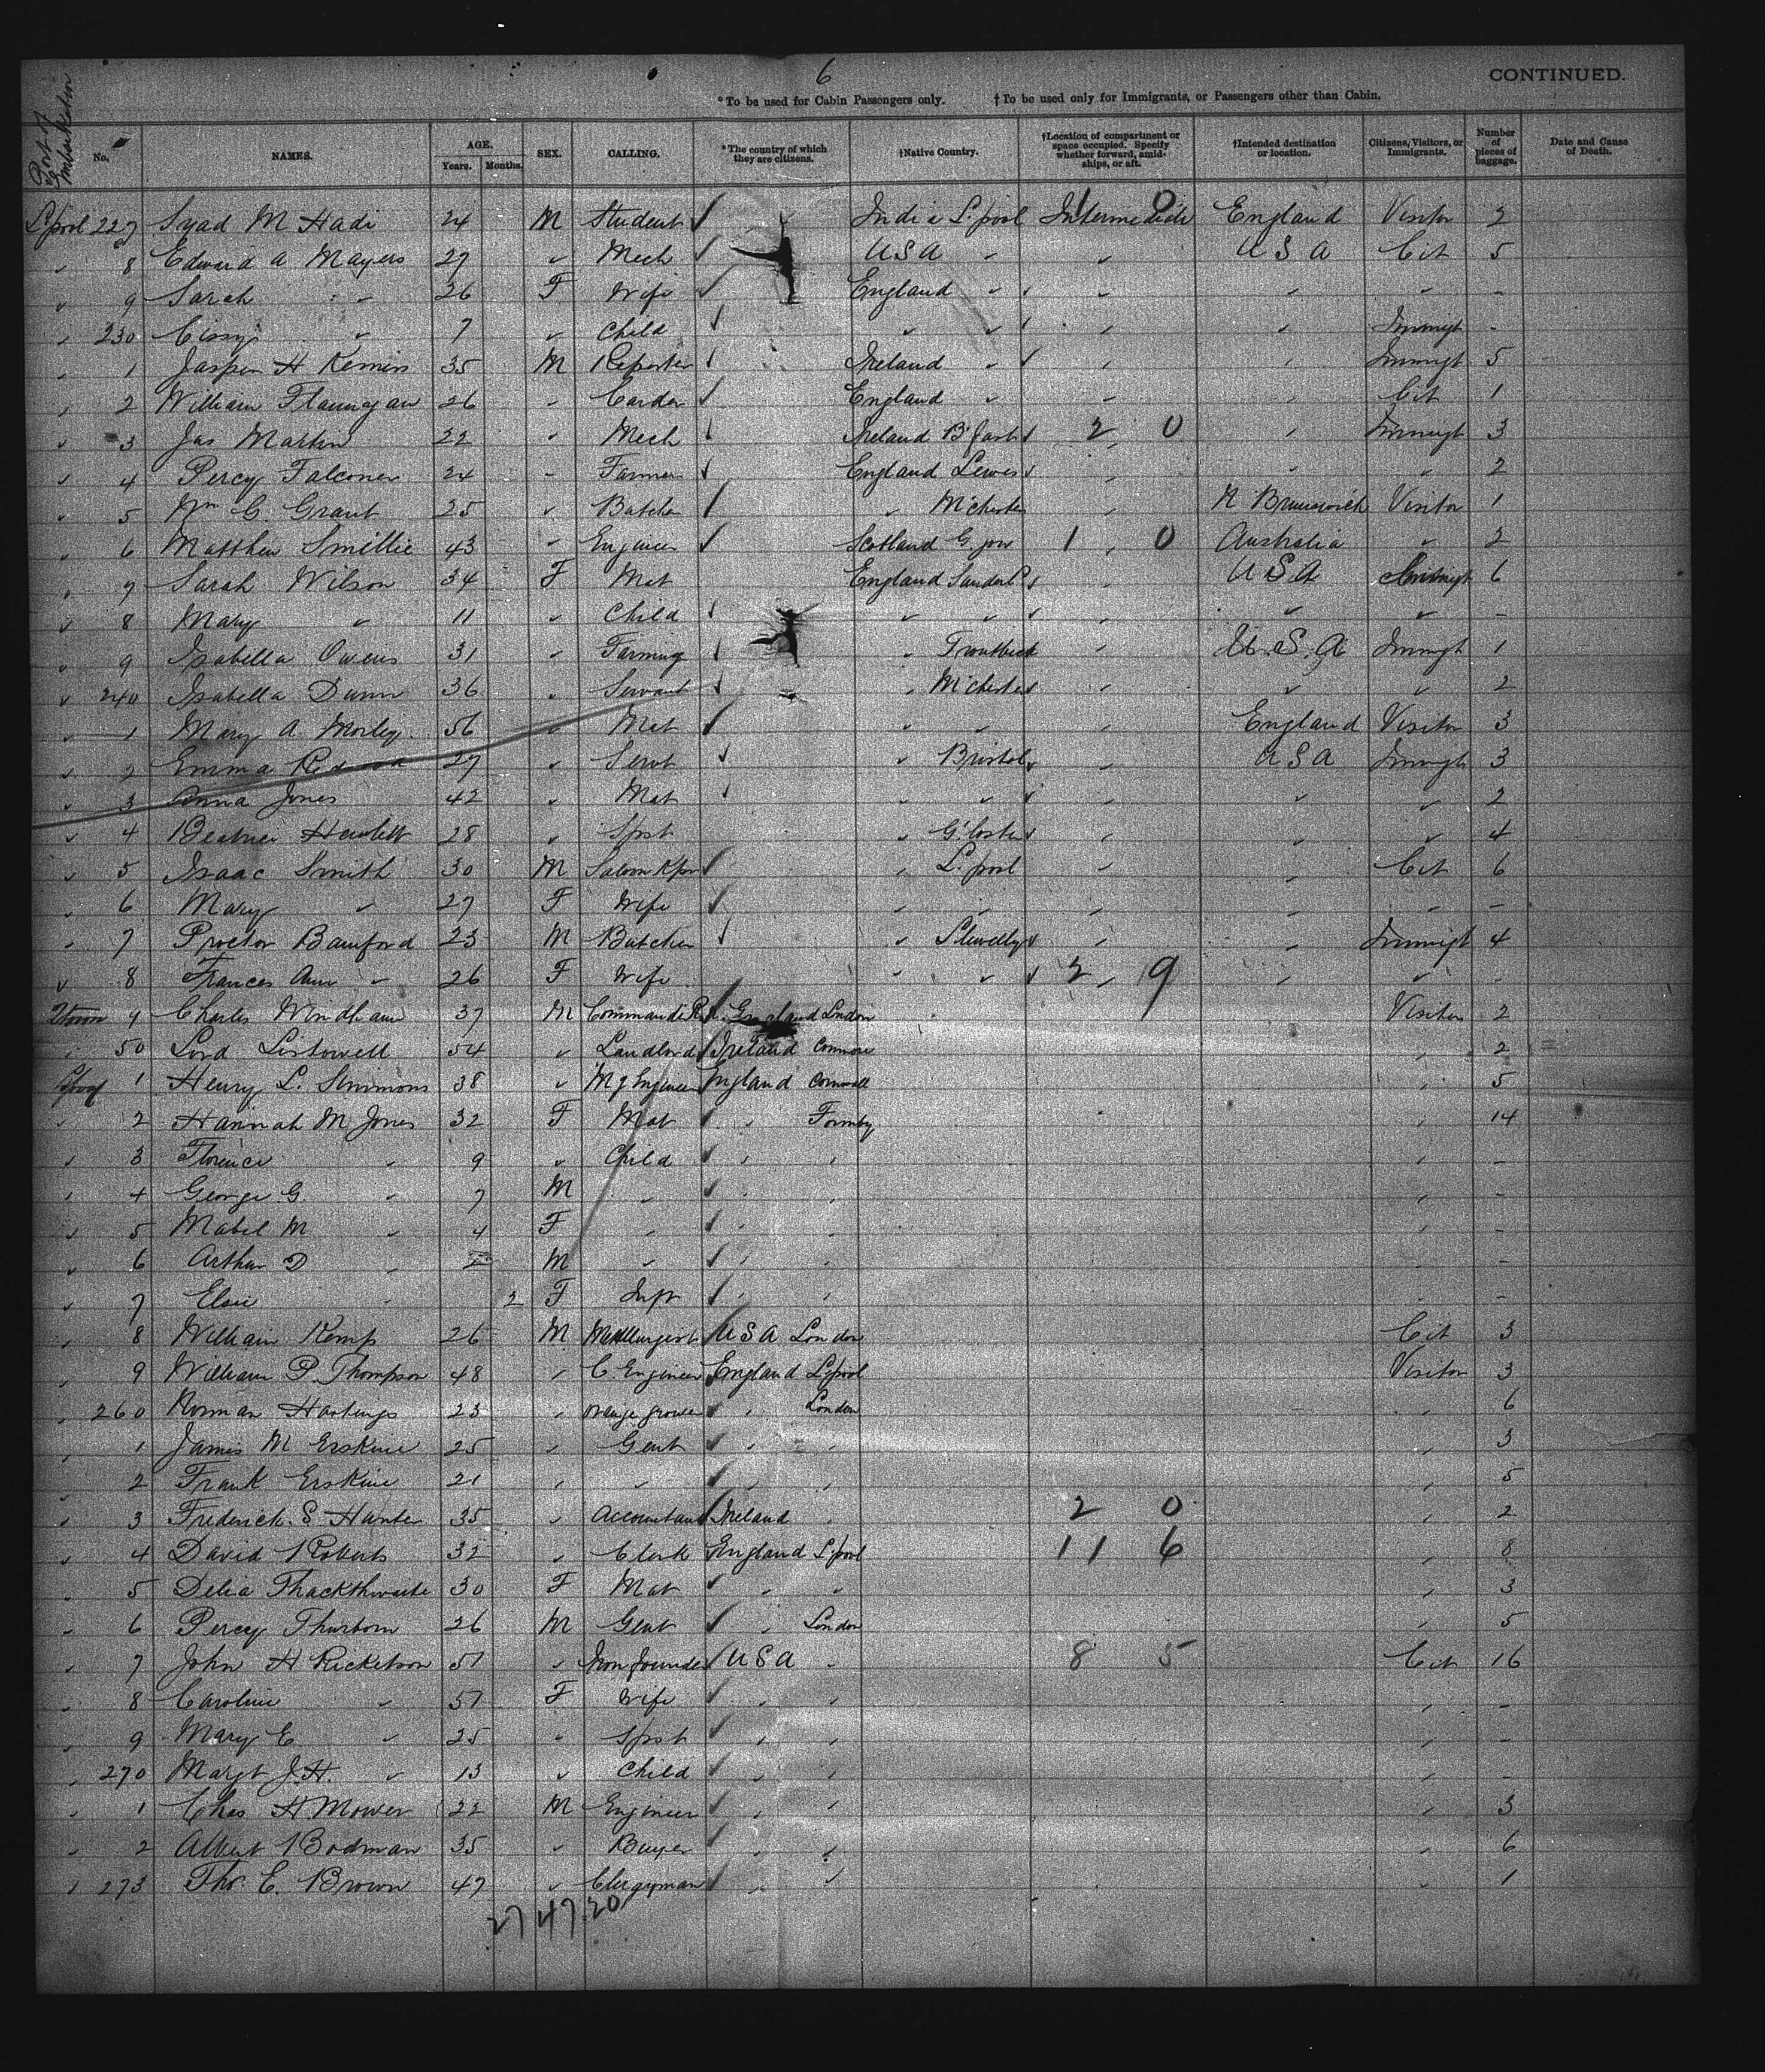 6
CONTINUED.
*To be used for Cabin Passengers only. †To be used only for Immigrants, or Passengers other than Cabin.
Port of Embarkation No. NAMES. AGE. Years. Months. SEX. CALLING. *The country of which they are citizens. †Native Country. †Location of compartment or space occupied. Specify whether forward, amidships, or aft. †Intended destination or location. Citizens, Visitors, or Immigrants. Number of pieces of baggage. Date and Cause of Death.
L'pool 227 Syad M Hadi 24 M Student ✓ India L.pool Intermediate 1 0 England Visitor 2
" 8 Edward A Mayers 27 " Mech ✓ U S A " " U S A Cit 5
" 9 Sarah " 26 F Wife ✓ England " " " " -
" 230 Cissy " 7 " Child ✓ " " " " Immigt -
" 1 H 35 M Reporter ✓ Ireland " " " Immigt 5
" 2 William Flannigan 26 " Carder ✓ England " " " Cit 1
" 3 Jas Martin 22 " Mech ✓ Ireland B'fast 2 0 " Immigt 3
" 4 Percy Falconer 24 " Farmer ✓ England Lewes " " " 2
" 5 Wm G. Grant 25 " Butcher ✓ " M'chester " N Brunswick Visitor 1
" 6 Matthew Smillie 43 " Engineer ✓ Scotland G.gow 1 0 Australia " 2
" 7 Sarah Wilson 34 F Mat England Sunderld " U S A 6
" 8 Mary " 11 " Child ✓ " " " " " -
" 9 Isabella Owens 31 " Farming ✓ " Troutbeck " U.S.A Immigt 1
" 240 Isabella Dunn 36 " Servant ✓ " M'chester " " " 2
" 1 Mary A Morley 56 " Mat ✓ " " " England Visitor 3
" 2 Emma 27 " Servt ✓ " Bristol " U S A Immigt 3
" 3 Anna Jones 42 " Mat ✓ " " " " " 2
" 4 Beatrice Hewlett 28 " Spst " G'loster " " " 4
" 5 Isaac Smith 30 M Saloon Kpr ✓ " L.pool " " Cit 6
" 6 Mary " 27 F Wife ✓ " " " " " -
" 7 Proctor Bamford 23 M Butcher ✓ " " " Immigt 4
" 8 Frances Ann " 26 F Wife " " 2 9 " " -
9 Charles Windham 37 M Commander R.N. England London Visitor 2
" 50 Lord Listowell 54 " Landlord ✓ Ireland " 2
L'pool 1 Henry L. Simmons 38 " Mg Engineer England Cornwall " 5
" 2 Hannah M Jones 32 F Mat ✓ " Formby " 14
" 3 Florence " 9 " Child ✓ " " " -
" 4 George G. " 7 M " ✓ " " " -
" 5 Mabel M " 4 F " ✓ " " " -
" 6 Arthur D " 2 M " ✓ " " " -
" 7 Elsie " 2 F Inft ✓ " " " -
" 8 William Kemp 26 M Metallurgist ✓ U S A London Cit 3
" 9 William P. Thompson 48 " C. Engineer England L'pool Visitor 3
" 260 Norman Hastings 23 " Orange grower ✓ " London " 6
" 1 James M Erskine 25 " Gent ✓ " " " 3
" 2 Frank Erskine 21 " " ✓ " " " 5
" 3 Frederick S Hunter 35 " Accountant ✓ Ireland " 2 0 " 2
" 4 David Roberts 32 " Clerk England L'pool 11 6 " 8
" 5 Delia Thackthwaite 30 F Mat ✓ " " " 3
" 6 Percy Thurborn 26 M Gent ✓ " London " 5
" 7 John H Ricketson 51 " Iron founder ✓ U S A " 8 5 Cit 16
" 8 Caroline " 51 F Wife ✓ " " " -
" 9 Mary E. " 25 " Spst ✓ " " " -
" 270 Margt J.H. " 13 " Child ✓ " " " -
" 1 Chas H Mower 22 M Engineer ✓ " " " 3
" 2 Albert Bodman 35 " Buyer ✓ " " " 6
" 273 Tho. E. Brown 47 " Clergyman ✓ " " " 1
27 47 20